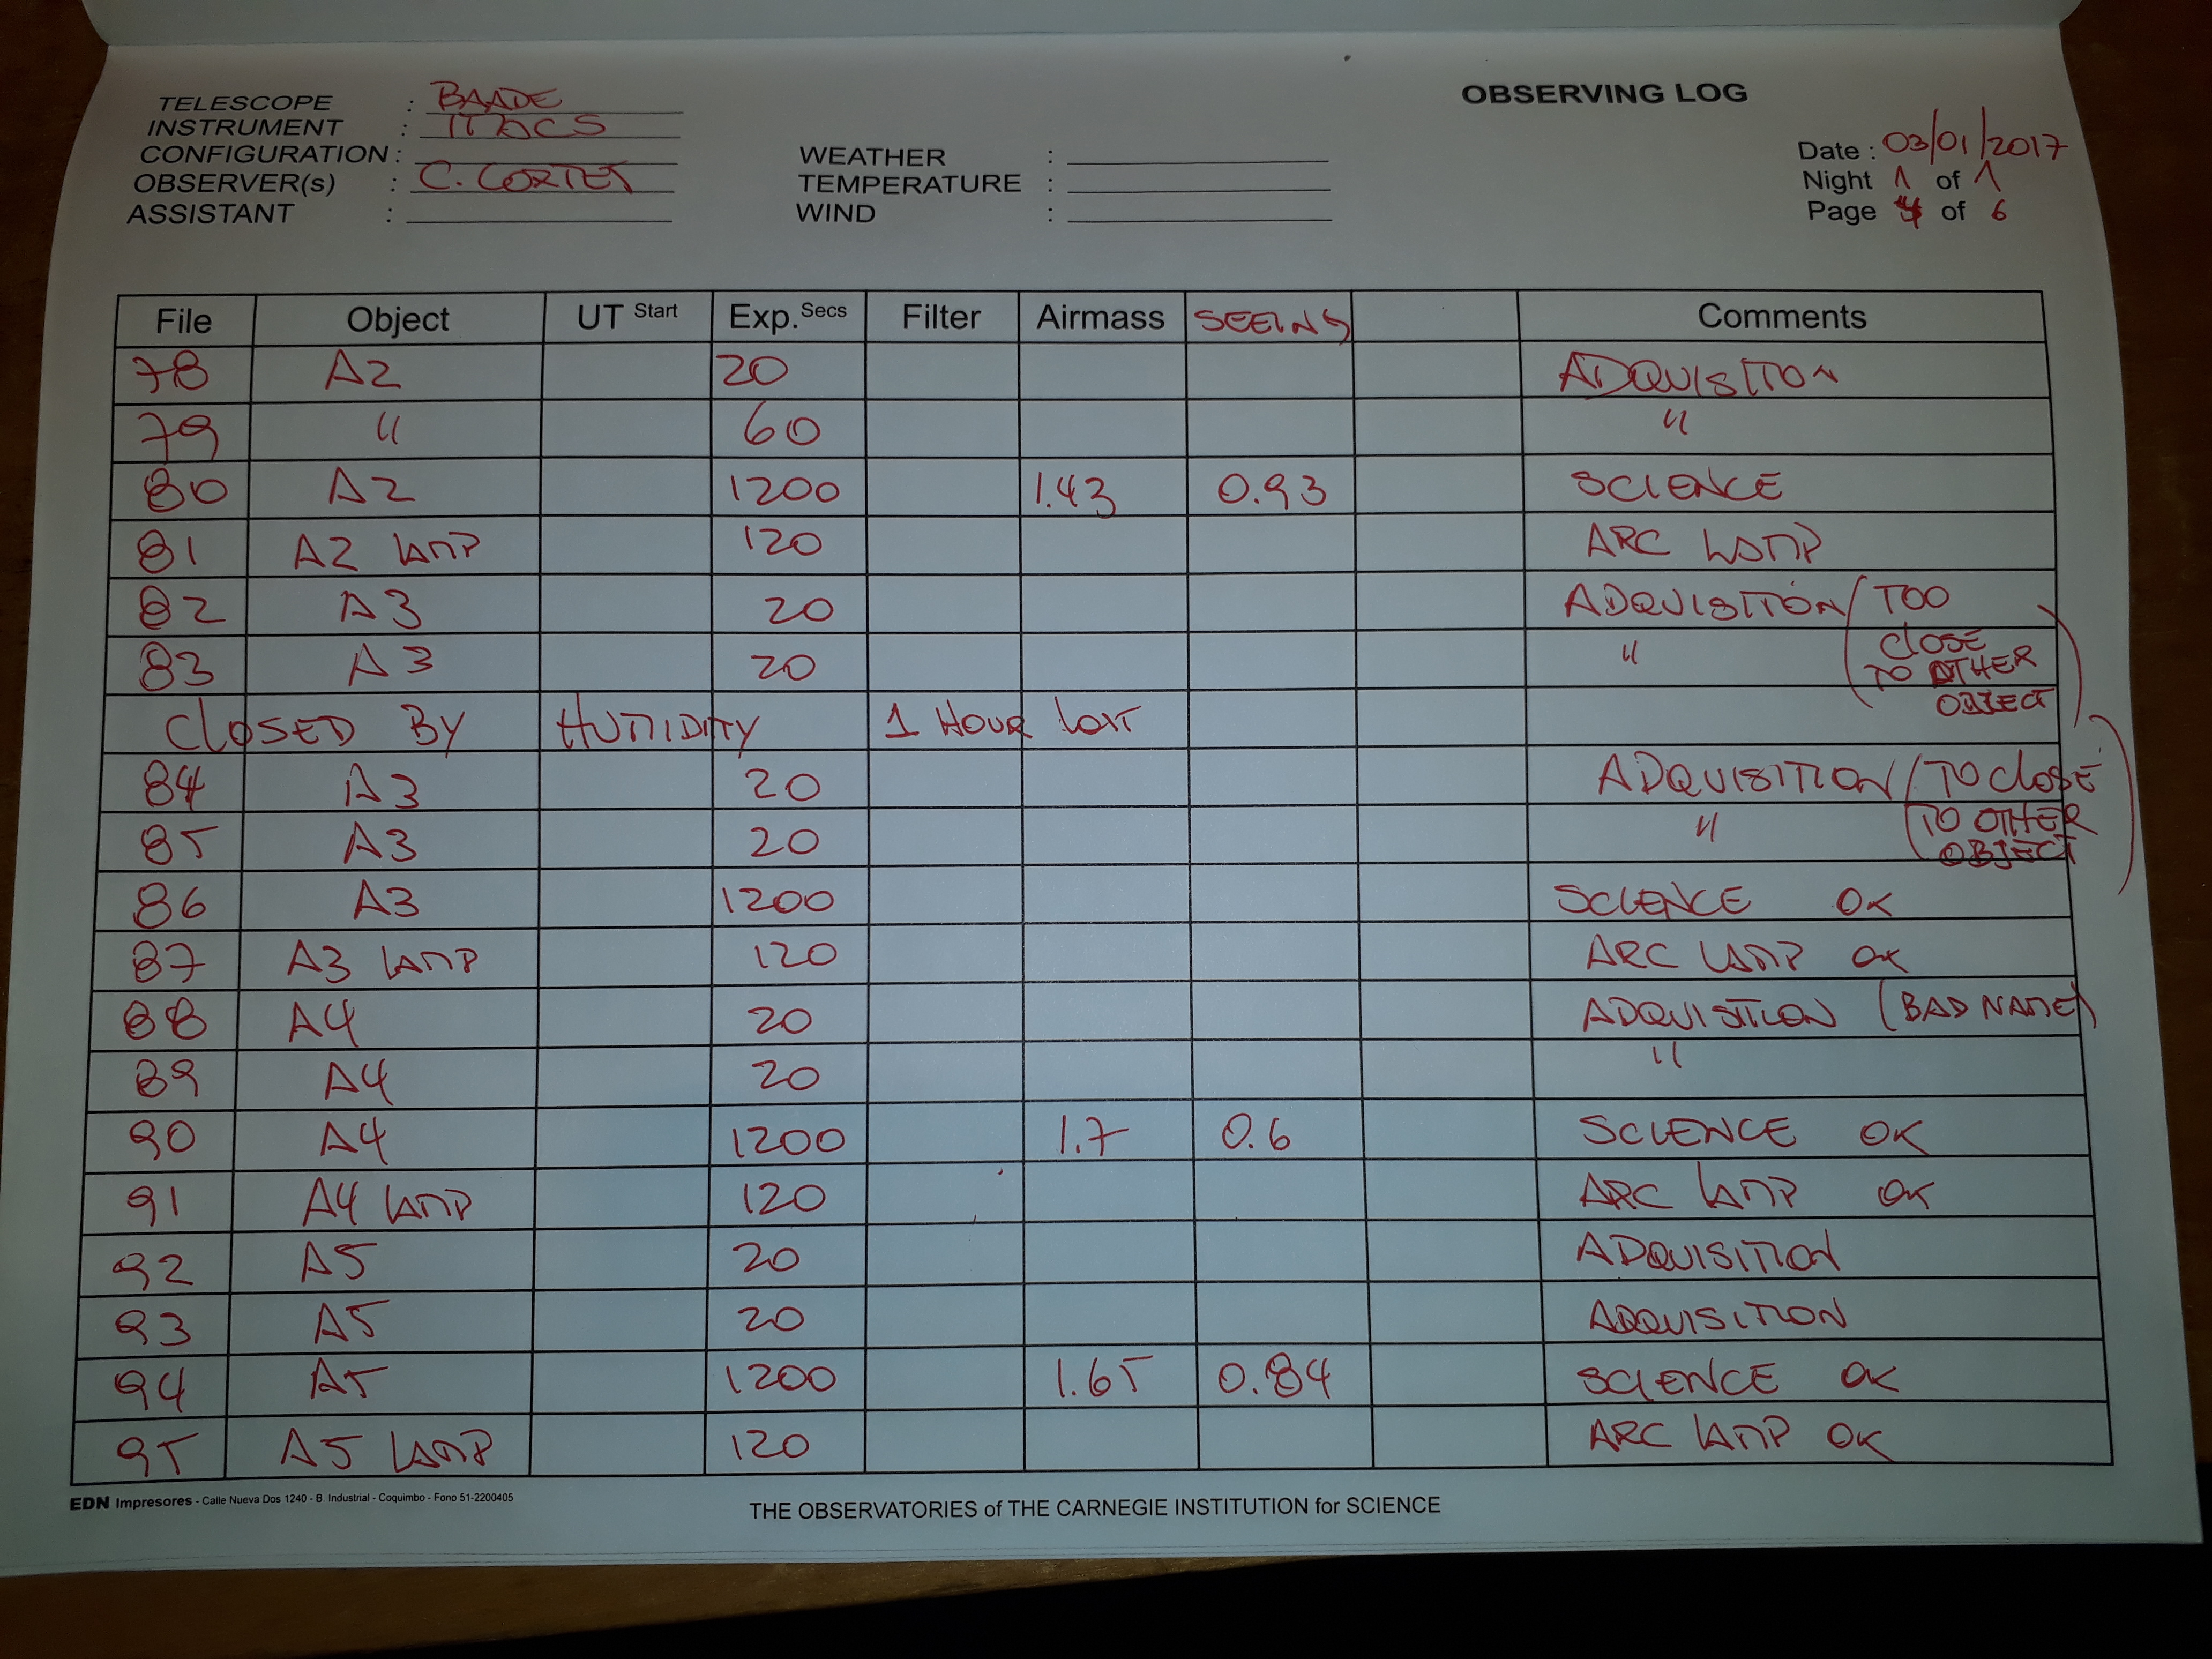 OBSERVING LOG
TELESCOPE : BAADE
INSTRUMENT :
CONFIGURATION :
OBSERVER(s) : C. CORTES
ASSISTANT :
WEATHER :
TEMPERATURE :
WIND :
Date : 03/01/2017
Night 1 of 1
Page 4 of 6
File Object UT Start Exp. Secs Filter Airmass SEEING Comments
78 A2 20 ADQUISITION
79 " 60 "
80 A2 1200 1.43 0.93 SCIENCE
81 A2 LAMP 120 ARC LAMP
82 A3 20 ADQUISITION / TOO
83 A3 20 " CLOSE
TO OTHER
OBJECT
CLOSED BY HUMIDITY 1 HOUR LOST
84 A3 20 ADQUISITION / TO CLOSE
85 A3 20 " TO OTHER
OBJECT
86 A3 1200 SCIENCE OK
87 A3 LAMP 120 ARC LAMP OK
88 A4 20 ADQUISITION (BAD NAME)
89 A4 20 "
90 A4 1200 1.7 0.6 SCIENCE OK
91 A4 LAMP 120 ARC LAMP OK
92 A5 20 ADQUISITION
93 A5 20 ADQUISITION
94 A5 1200 1.65 0.84 SCIENCE OK
95 A5 LAMP 120 ARC LAMP OK
EDN Impresores - Calle Nueva Dos 1240 - B. Industrial - Coquimbo - Fono 51-2200405
THE OBSERVATORIES of THE CARNEGIE INSTITUTION for SCIENCE